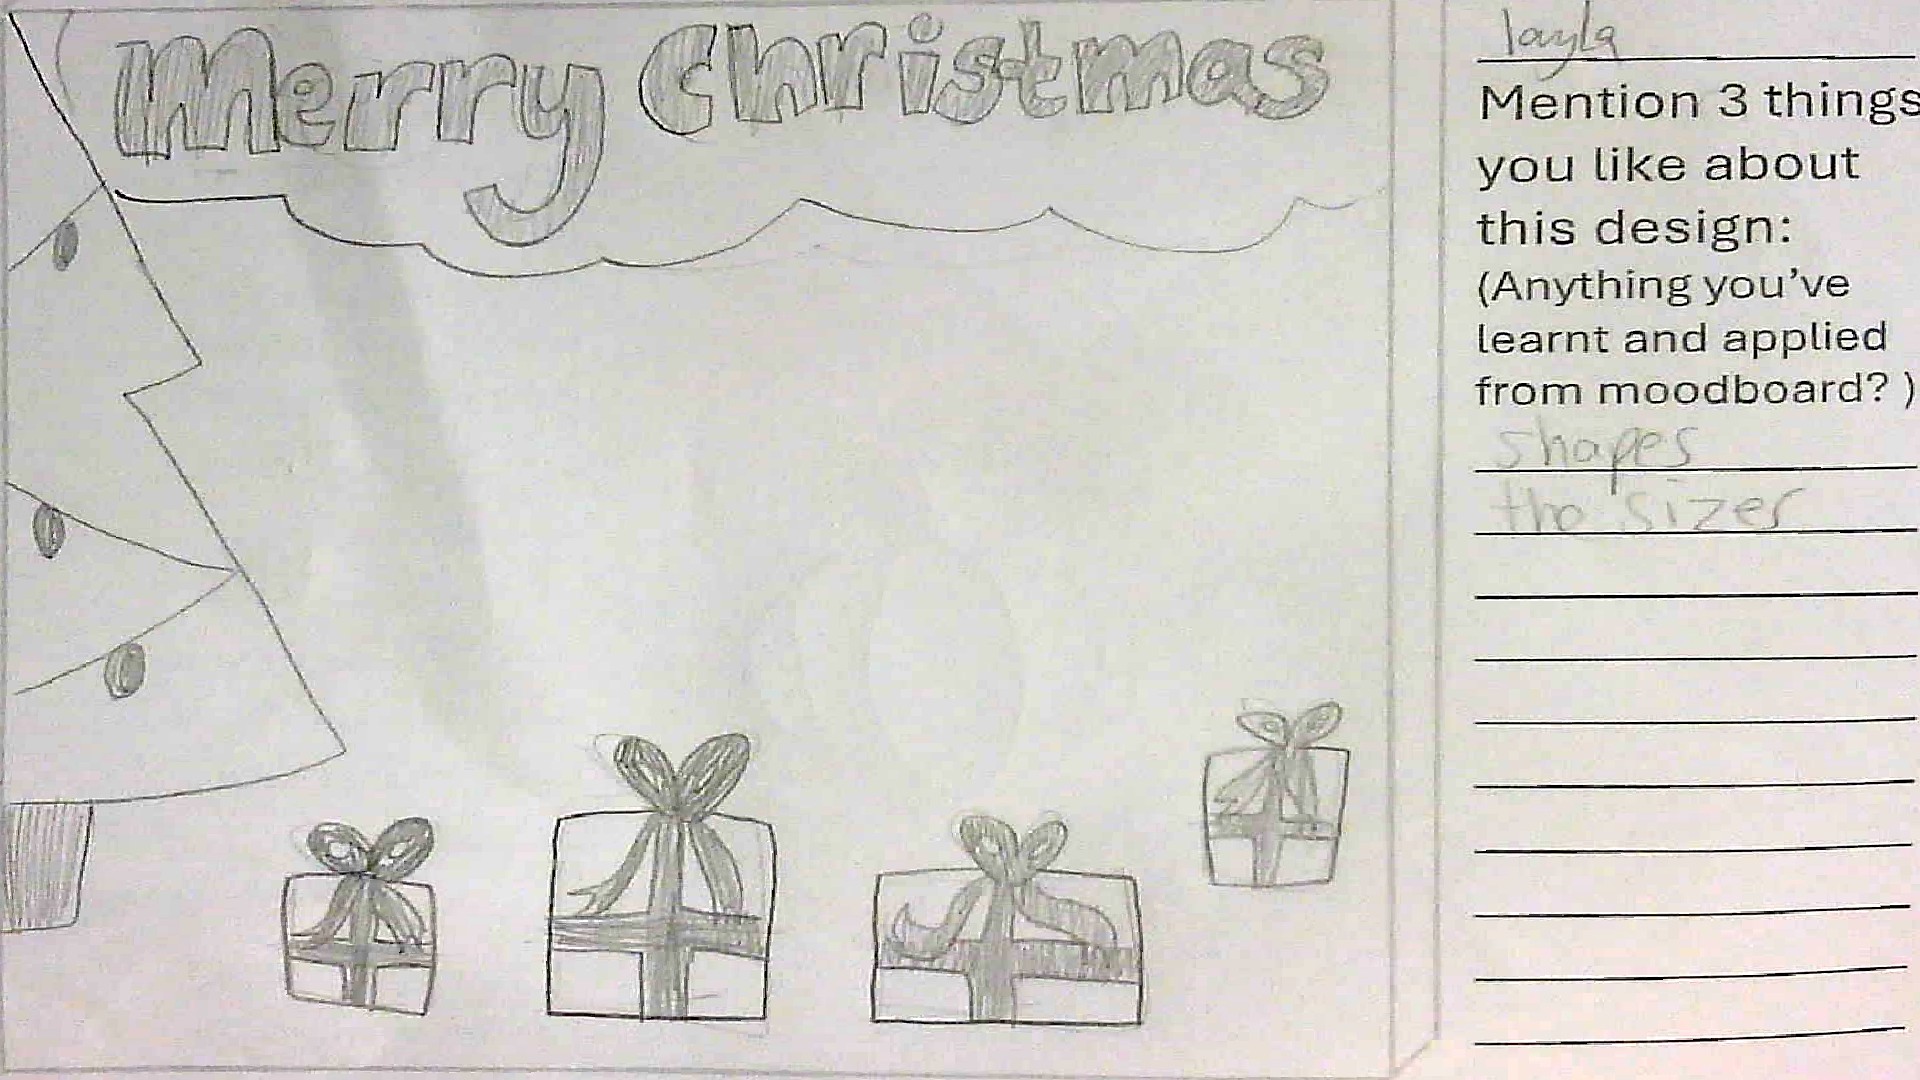 Merry Christmas
layla
Mention 3 things
you like about
this design:
(Anything you've
learnt and applied
from moodboard? )
shapes
the sizes